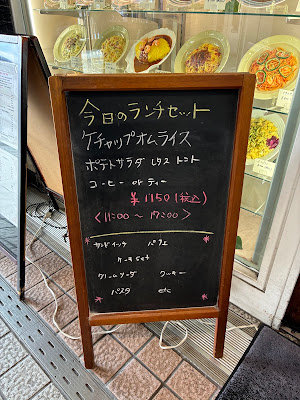 今日のランチセット
ケチャップオムライス
ポテトサラダ レタス トマト
コーヒー or ティー
¥1150(税込)
<11:00 ~ 17:00>
サンドイッチ パフェ
ケーキset
クリームソーダ クッキー
パスタ etc